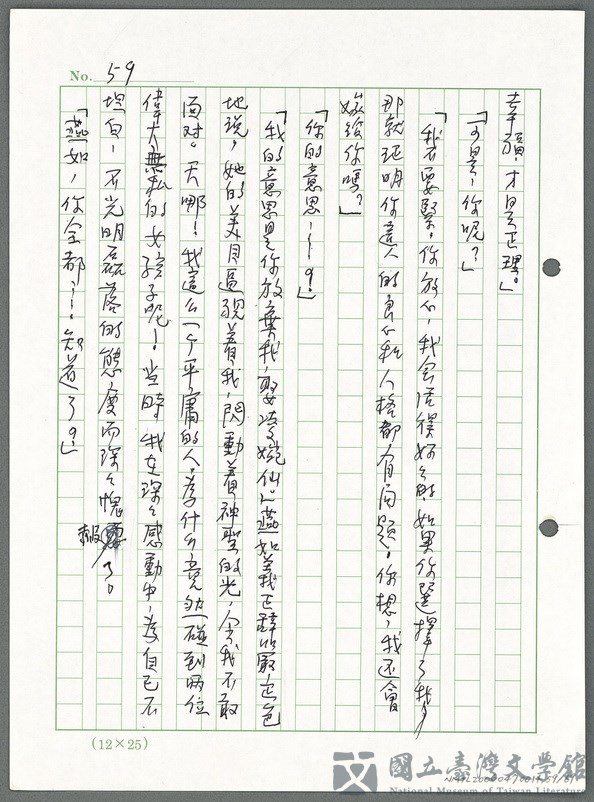 No. 59
幸福,才是正理。」
「可是,你呢?」
「我不要緊,你放心,我會活得好好的,如果你選擇了我,
那就証明你這人的良心和人格都有問題,你想,我還會
嫁給你嗎?」
「你的意思——?」
「我的意思是你放棄我,娶凌婉仙。」燕如義正辭嚴
地說,她的美目逼視着我,閃動着神聖的光,令我不敢
面對。天哪!我這么一个平庸的人,為什么竟然碰到兩位
偉大無私的女孩子呢!当時,我在深深感動中,為自己不
坦白,不光明磊落的態度而深深愧赧了。
「燕如,你全都——知道了?」
(12×25)
國立臺灣文學館
National Museum of Taiwan Literature